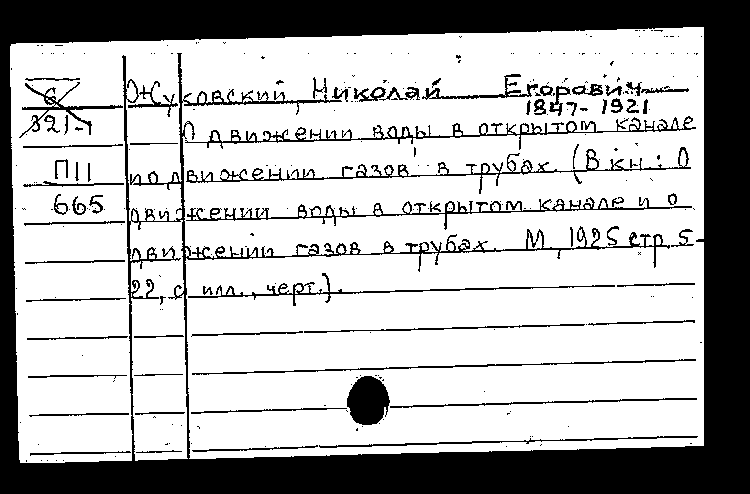 Жуковский, Николай Егорович
1847-1921
6
321-1
О движении воды в открытом канале
П11
и о движении газов в трубах. (В кн.: О
665
движении воды в открытом канале и о
движении газов в трубах. М., 1925 стр. 5-
22, с илл., черт.).